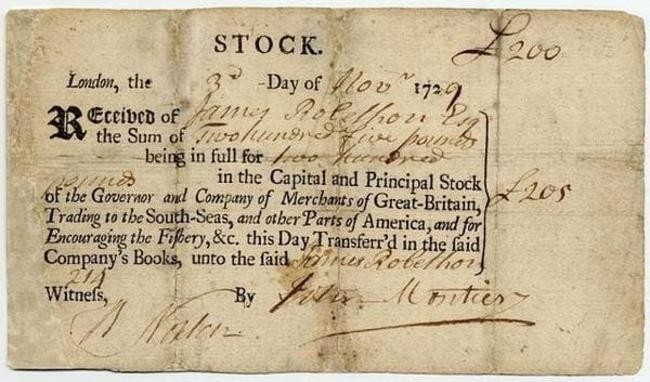 STOCK.
£200
London, the 3d Day of Novr 1729
REceived of James Robethon Esq
the Sum of Two hundred five pounds
being in full for two hundred
pounds in the Capital and Principal Stock
of the Governor and Company of Merchants of Great-Britain, £205
Trading to the South-Seas, and other Parts of America, and for
Encouraging the Fishery, &c. this Day Transferr'd in the said
Company's Books, unto the said James Robethon
214
Witness, By John Montier
Norton